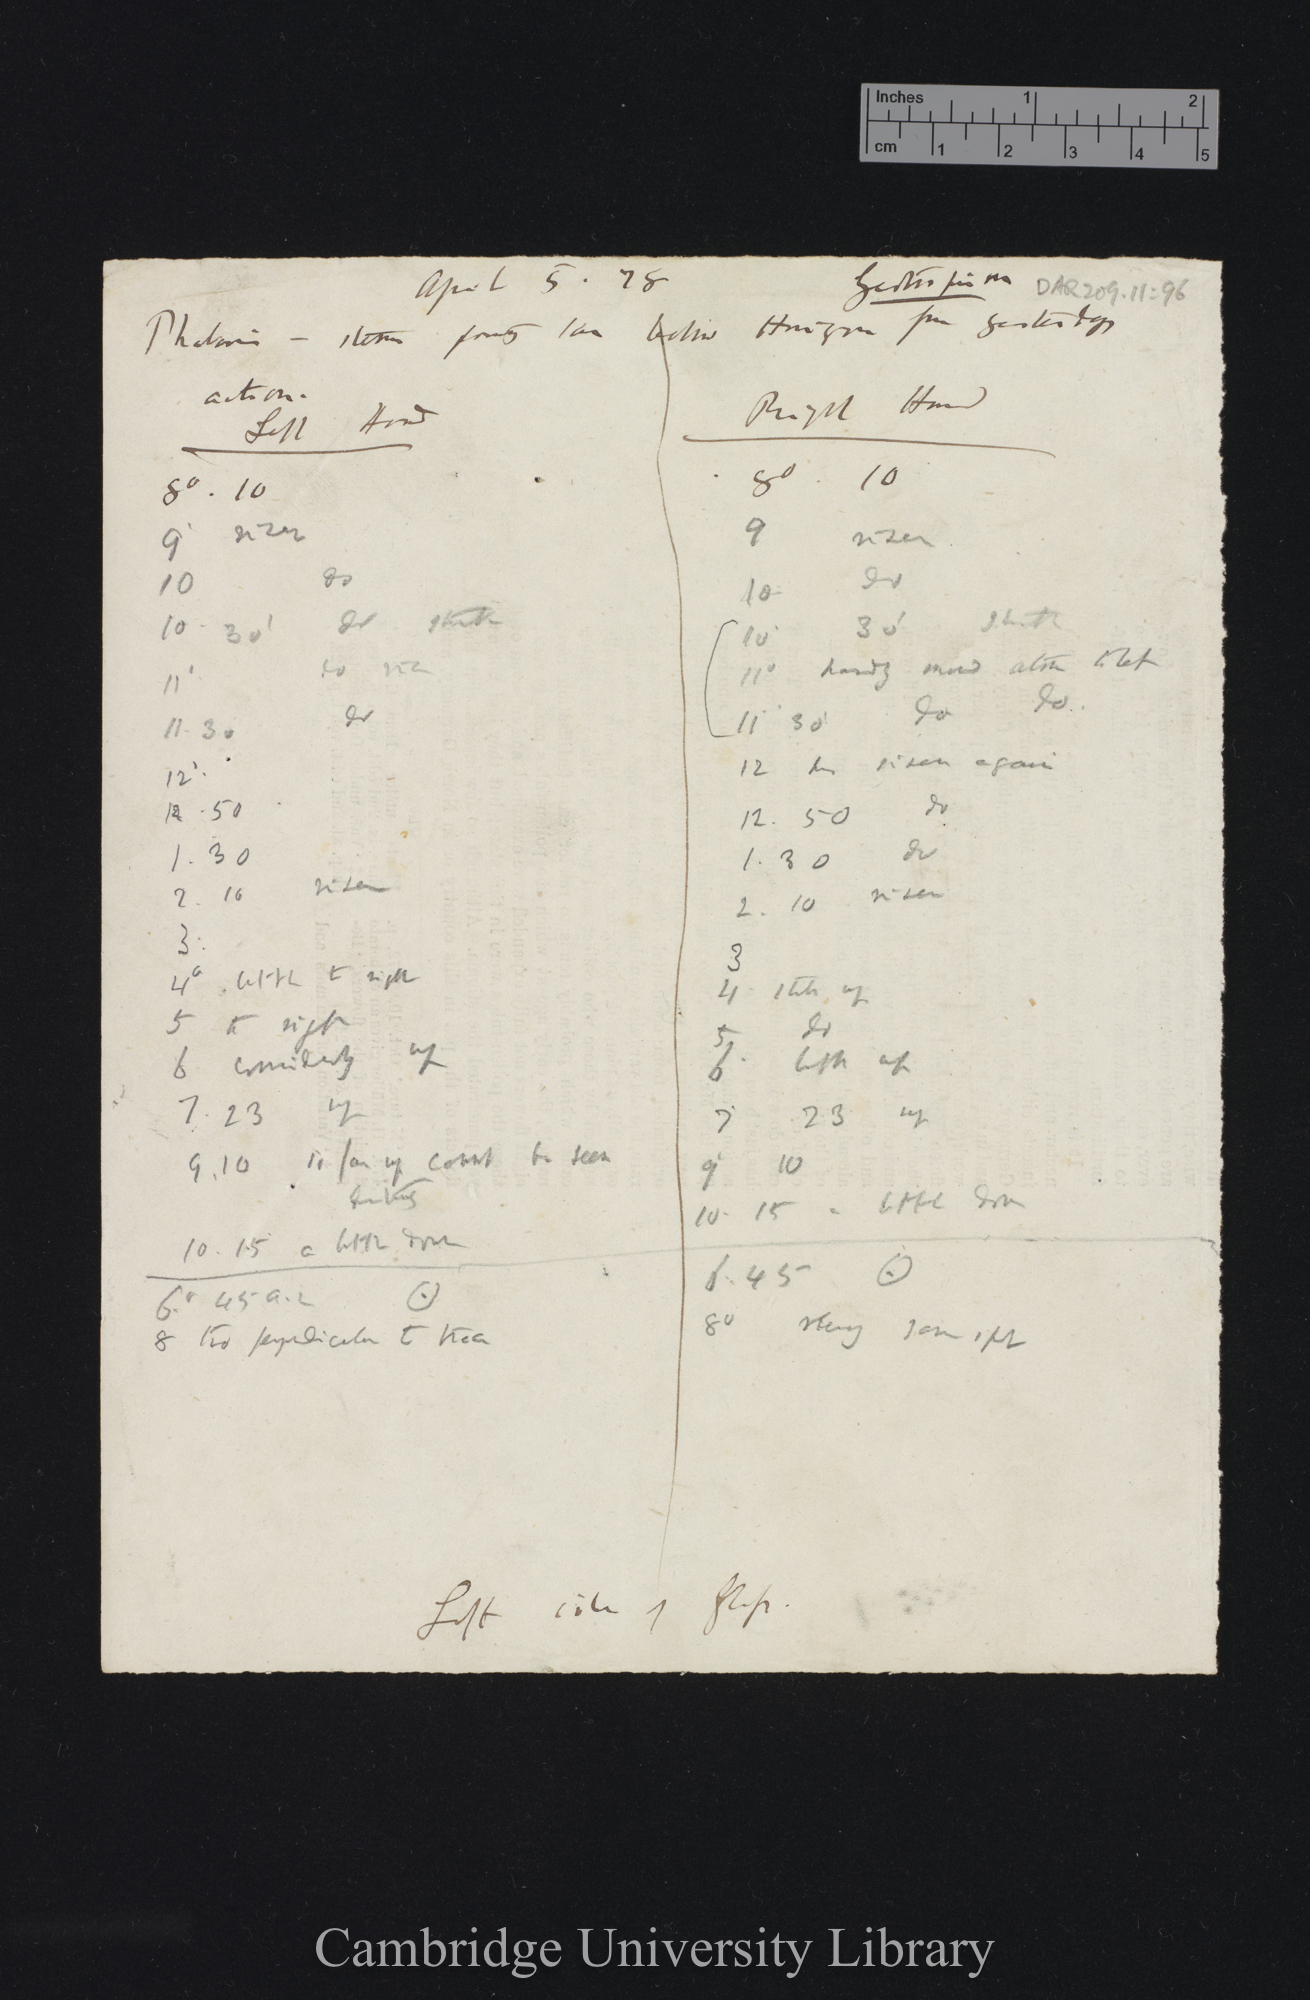 Inches 1 2
cm 1 2 3 4 5
April 5. 78 Geotropism DAR 209.11:96
Phalaris — stems points below Horizon from yesterdays
action.
Left Hand
8°. 10
9 risen
10 do
10. 30' do
11' do risen
11. 30 do
12'.
12. 50
1. 30
2. 10 risen
3.
4° little to right
5 to right
6 considerably up
7. 23 up
9. 10 so far up cannot be seen
10. 15 a little down
6° 45 a.m ⊙
8 two perpendicular to
Right Hand
8°. 10
9 risen
10 do
10 30'
11° hardly moved a little to left
11 30' do do.
12 has risen again
12. 50 do
1. 30 do
2. 10 risen
3
4 still up
5 do
6. little up
7 23 up
9 10
10. 15 a little down
6. 45 ⊙
8° same spot
Left side of
Cambridge University Library